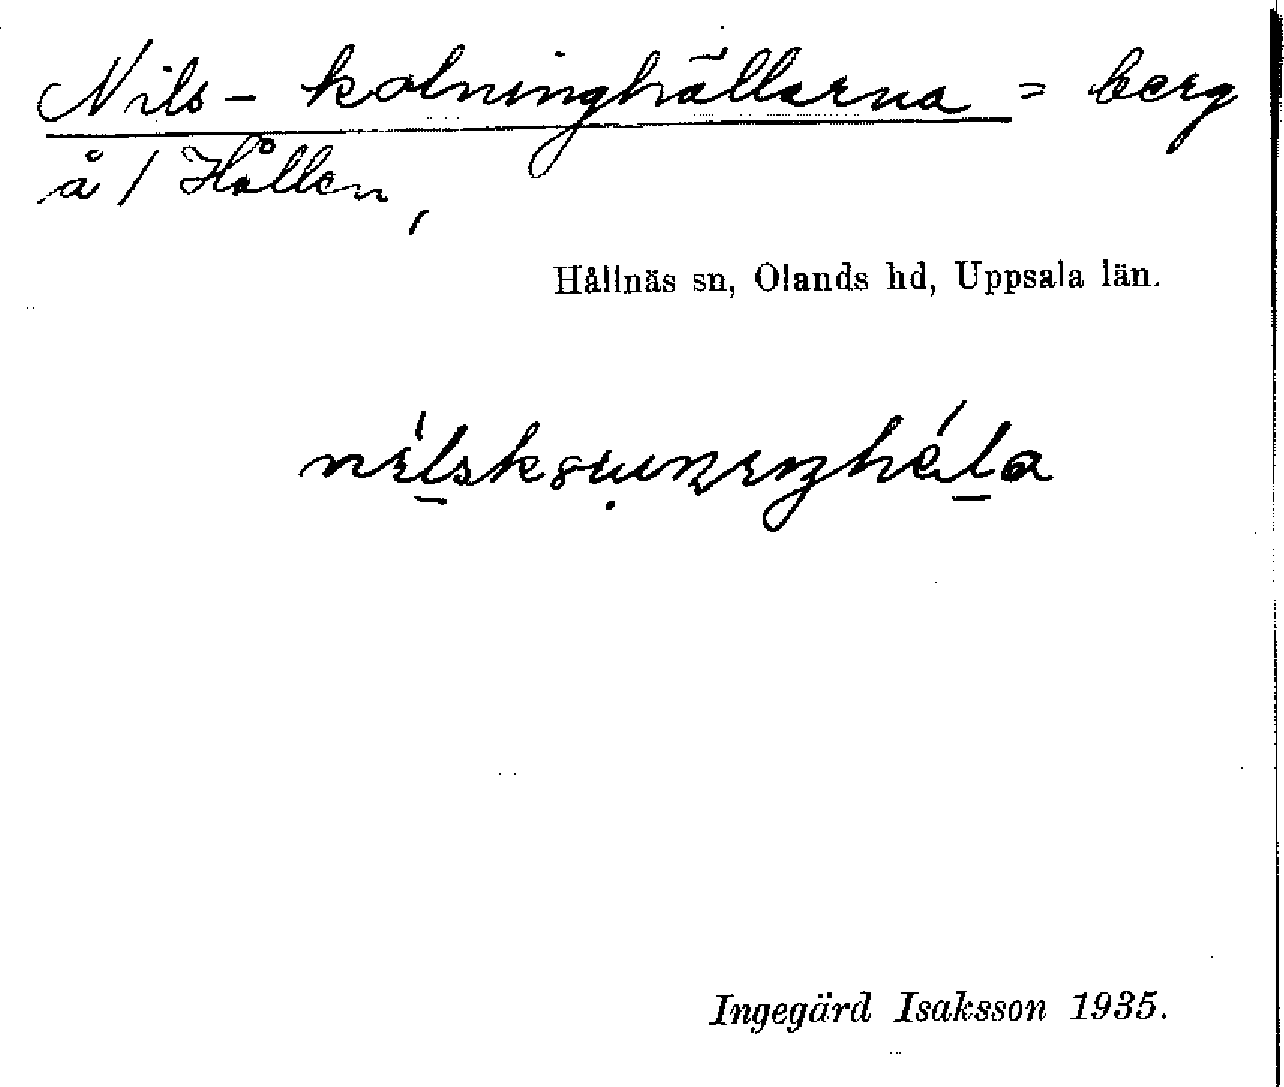 Nils-kolninghällarna = berg
å / Hållen,
Hållnäs sn, Olands hd, Uppsala län.
Ingegärd Isaksson 1935.